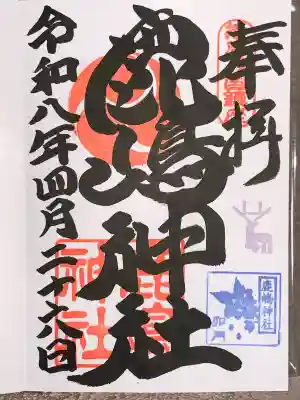 奉拝
鹿嶋神社
令和八年四月二十六日
鹿嶋神社